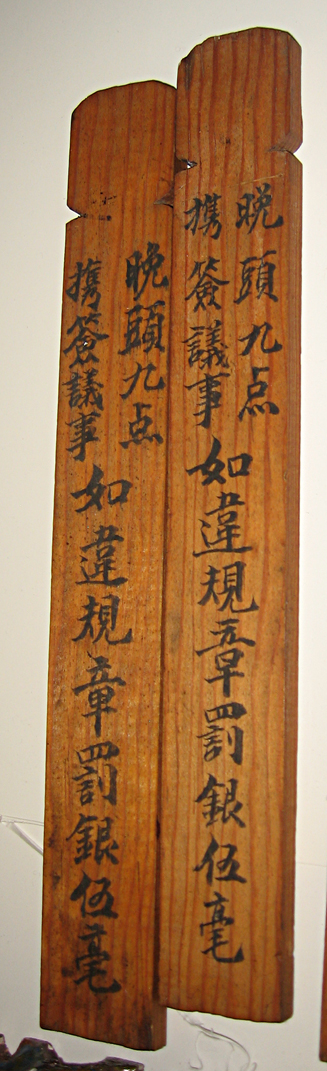 晚頭九点
攜簽議事
如違規章罰銀伍毫
晚頭九点
携簽議事
如違規章罰銀伍毫